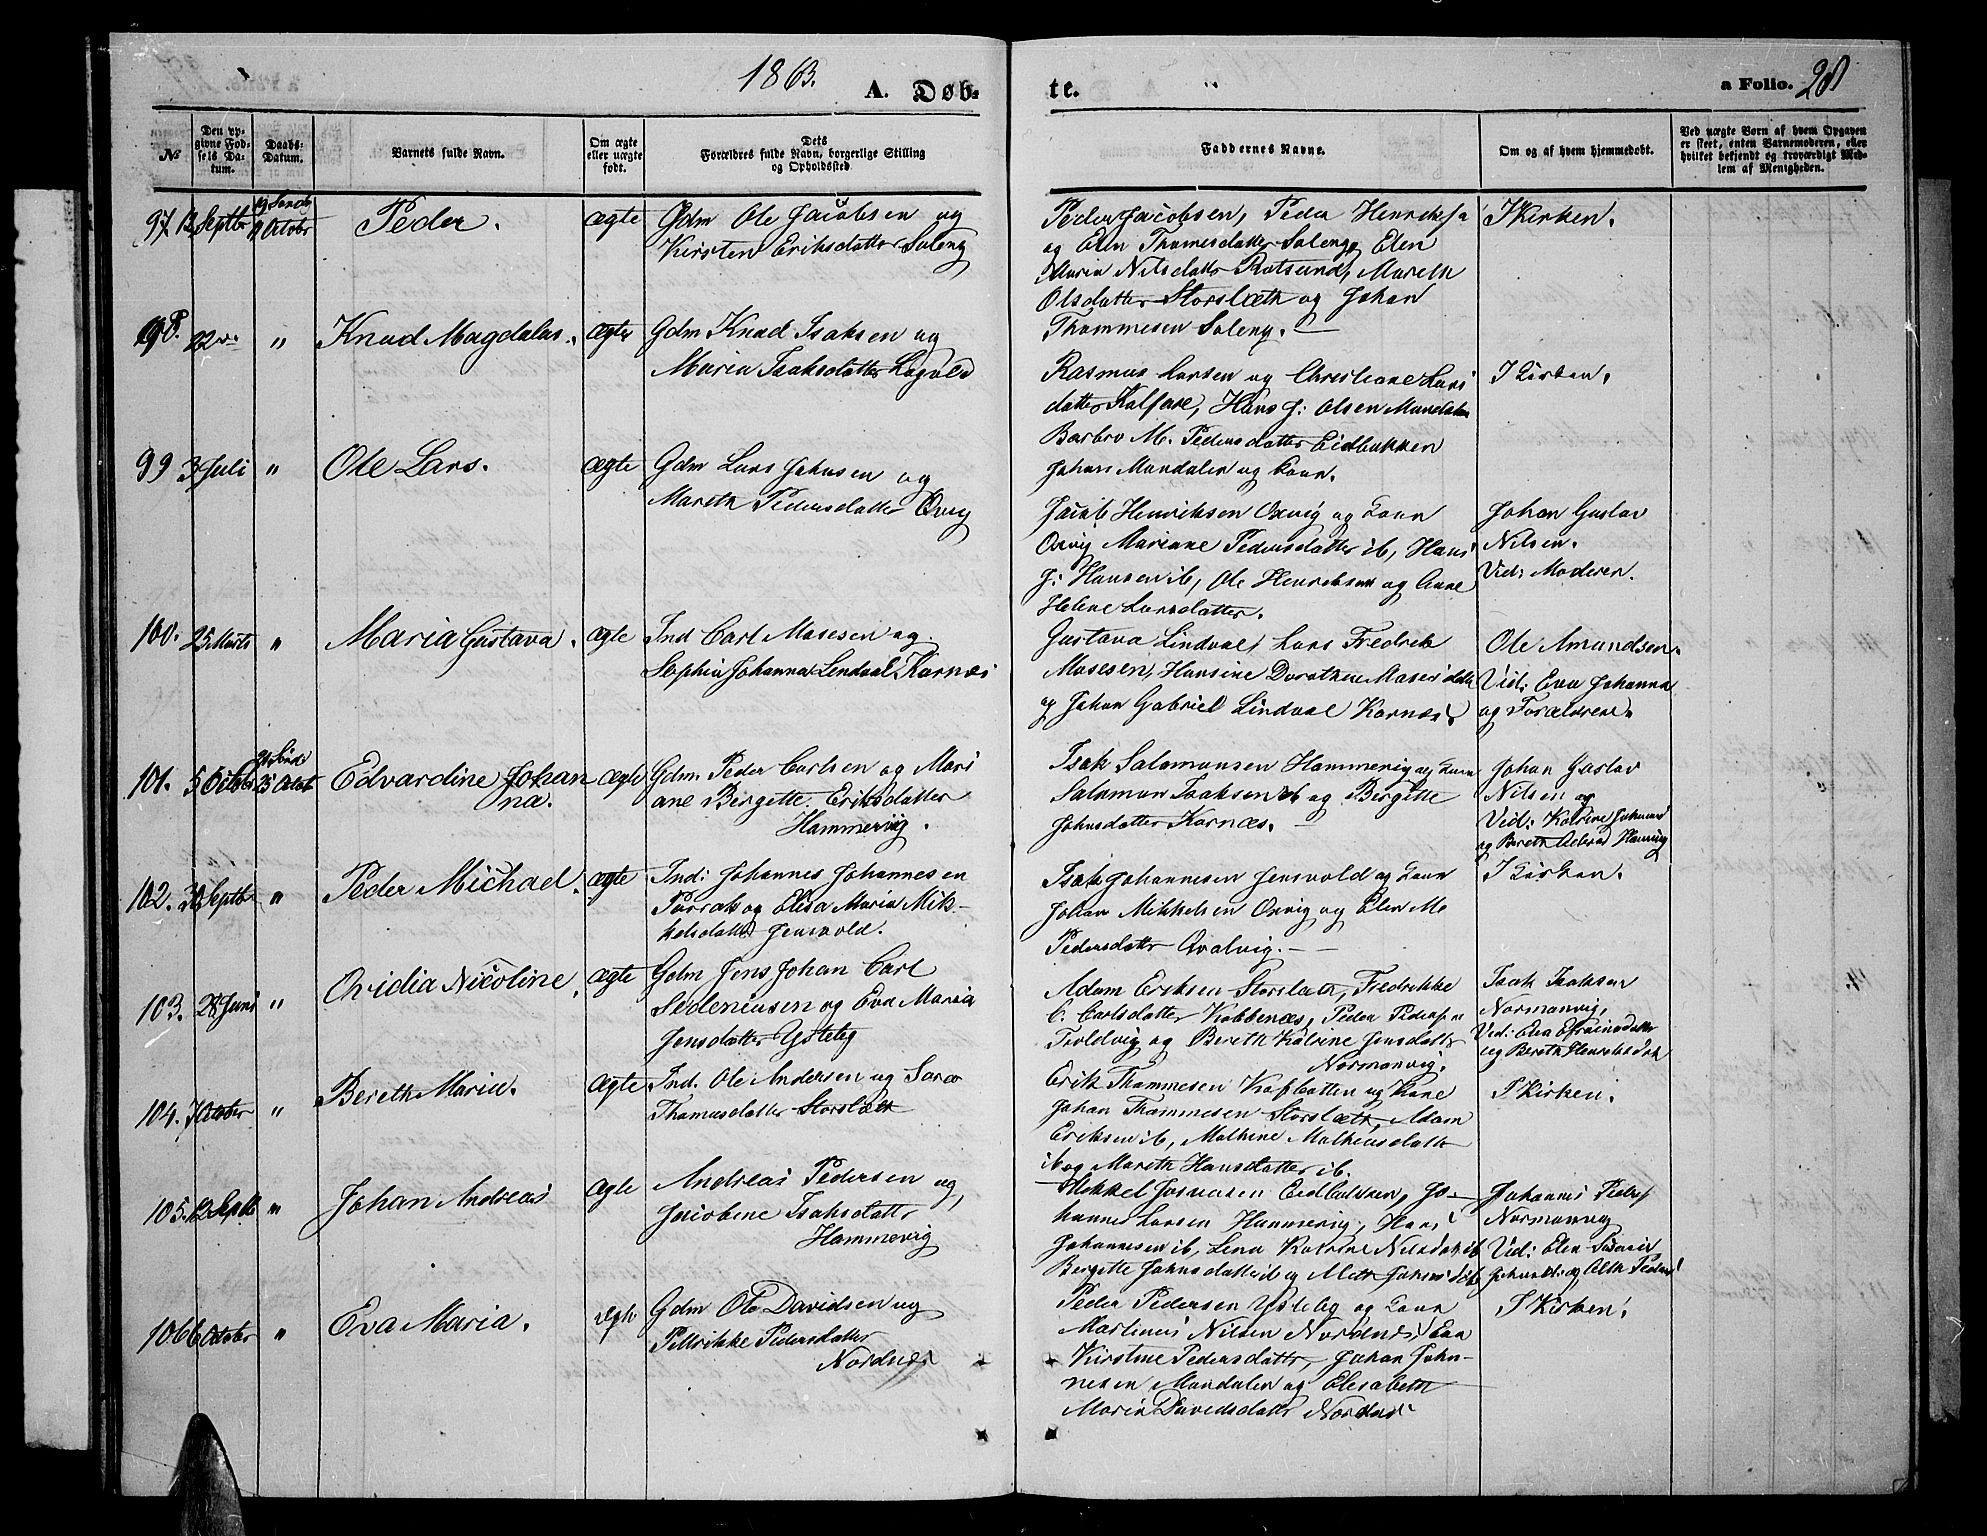 1863.
A. Døb-
te.
a Folio. 28
No
Den op-
givne Fød-
sels Da-
tum.
Daabs-
Datum.
Barnets fulde Navn.
Om ægte
eller uægte
født.
Dets
Forældres fulde Navn, borgerlige Stilling
og Opholdssted.
Faddernes Navne.
Om og af hvem hjemmedøbt.
Ved uægte Børn af hvem Opgaven
er skeet, enten Barnemoderen, eller
hvilket bekjendt og troværdigt Med-
lem af Menigheden.
97 12 Septbr October Peder. ægte Gdm Ole Jacobsen og
Kirsten Eriksdatter Soleng
Peder Jacobsen, Peder
og Elen Thomesdatter Soleng, Elen
Maria Nilsdatter Rotsund, Mareth
Olsdatter Storslæth og Johan
Thommesen Soleng.
I Kirken.
98. 22 " Knud Magdalus. ægte Gdm Knud Isaksen og
Maria Isaksdatter
Rasmus Larsen og Christiane Lars
datter, Hans J: Olsen Mandalen
Barbro M. Pedersdatter Eidbakken
Johan Mandalen og Kone.
I Kirken.
99 3 Juli " Ole Lars. ægte Gdm Lars Johnsen og
Mareth Pedersdatter Oxvig
Jacob Henriksen Oxvig og Kone
Oxvig Mariane Pedersdatter ib, Hans
J: Hansen ib, Ole Henriksen og Anne
Helene Larsdatter.
Johan Gustav
Nilsen.
Vid: Moderen.
100. 25 Marts " Maria Gustava. ægte Ind Carl Mosesen og
Sophia Johanna Lendval Karnæs
Gustava Lindval, Lars Fredrik
Mosesen, Hansine Dorothea Moses datter
og Johan Gabriel Lindval Karnæs.
Ole Amundsen.
Vid: Eva Johanna
og Forældrene.
101. 5 October 25 Octob Edvardine Johan
na. ægte Gdm. Peder Carlsen og Mari
ane Bergette Eriksdatter
Hammervig.
Isak Salamonsen Hammervig og Kone
Salamon Isaksen ib og Birgitte
Johnsdatter Karnæs.
Johan Gustav
Nilsen og
Vid: Katrine
og Bereth
102. 30 Septbr " Peder Michael. ægte Ind: Johannes Johannesen
og Elisa Maria Mik-
kelsdatter Jensvold.
Isak Johannesen Jensvold og Kone
Johan Mikkelsen Oxvig og Elen M
Pedersdatter Qvalvig.
I Kirken.
103. 28 Juni " Ovidia Nicoline, ægte Gdm Jens Johan Carl
Sedeniusen og Eva Maria
Jensdatter Ysteby
Adam Eriksen Storslæth, Fredrikke
C. Carlsdatter Kobbenæs, Peder
Troldvig og Bereth Katrine Jensdatter
Normanvig.
Isak Isaksen
Normanvig,
Vid: Eva
og Bereth
104. 7 October " Bereth Maria. ægte Ind. Ole Andersen og Sara
Thomasdatter Storslæth
Erik Thommesen og Kone
Johan Thommesen Storslæth, Adam
Eriksen ib, Mathine
ib og Mareth Hansdatter ib.
I Kirken.
105. 12 Septb " Johan Andreas ægte Andreas Pedersen og,
Jacobine Isaksdatter
Hammervig
Mikkel Josvasen Eidbakken, Jo-
hannes Larsen Hammervig, Hans
Johannesen ib, Lena Katrine ib
Bergitte Johnsdatter ib og
Johannes
Normanvig
Vid: Elen
106 6 October " Eva Maria. ægte Gdm Ole Davidsen og
Pedersdatter
Nordnæs
Peder Pedersen Ysteby og Kone
Martinus Nilsen Nordnæs, Eva
Kirstine Pedersdatter, Johan Joha-
nesen Mandalen og Elisabeth
Maria Davidsdatter Nordnæs
I Kirken.